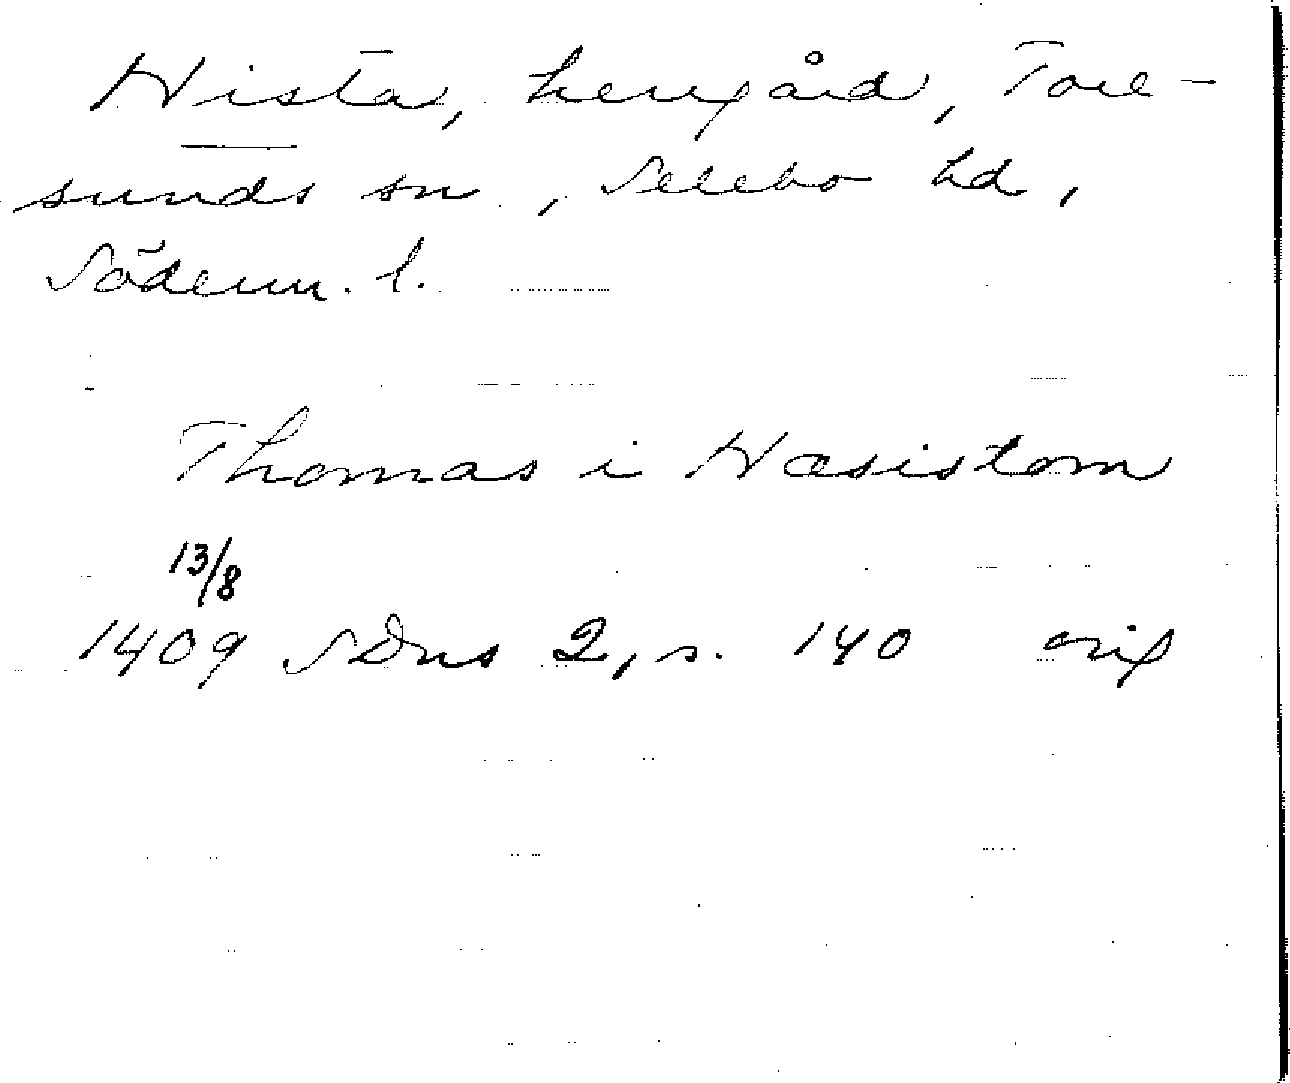 Hista, herrgård, Tore-
sunds sn, Selebo hd,
Söderm. l.
Thomas i Hæsistom
13/8
1409 SDns 2, s. 140 orig